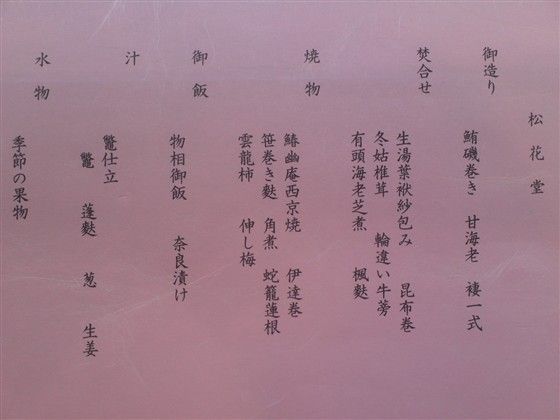 松花堂
御造り
鮪磯巻き 甘海老 褄一式
焚合せ
生湯葉袱紗包み 昆布巻
冬姑椎茸 輪違い牛蒡
有頭海老芝煮 楓麩
焼物
鰆幽庵西京焼 伊達巻
笹巻き麩 角煮 蛇籠蓮根
雲龍柿 伸し梅
御飯
物相御飯 奈良漬け
汁
鼈仕立
鼈 蓬麩 葱 生姜
水物
季節の果物